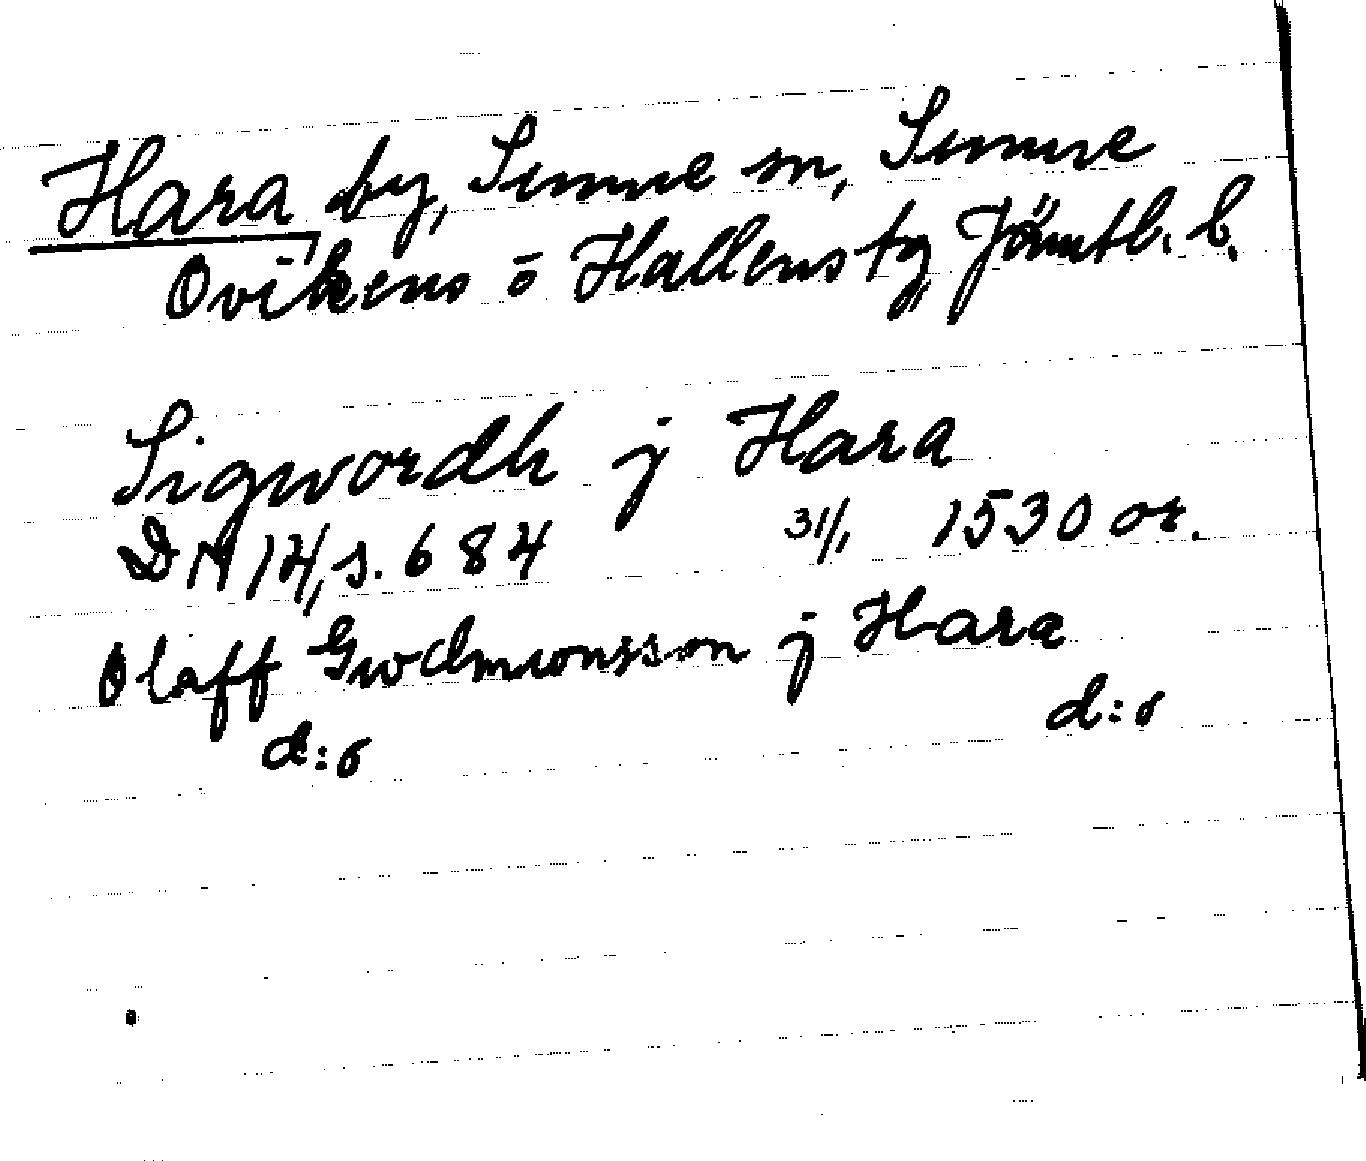 Hara by, Sunne sn, Sunne
Ovikens o Hallens tg, Jämtl. l.
Sigwordh j Hara
DN 14, s. 684 31/1 1530 or.
Olaff Gwdmwnsson j Hara
d:o d:o